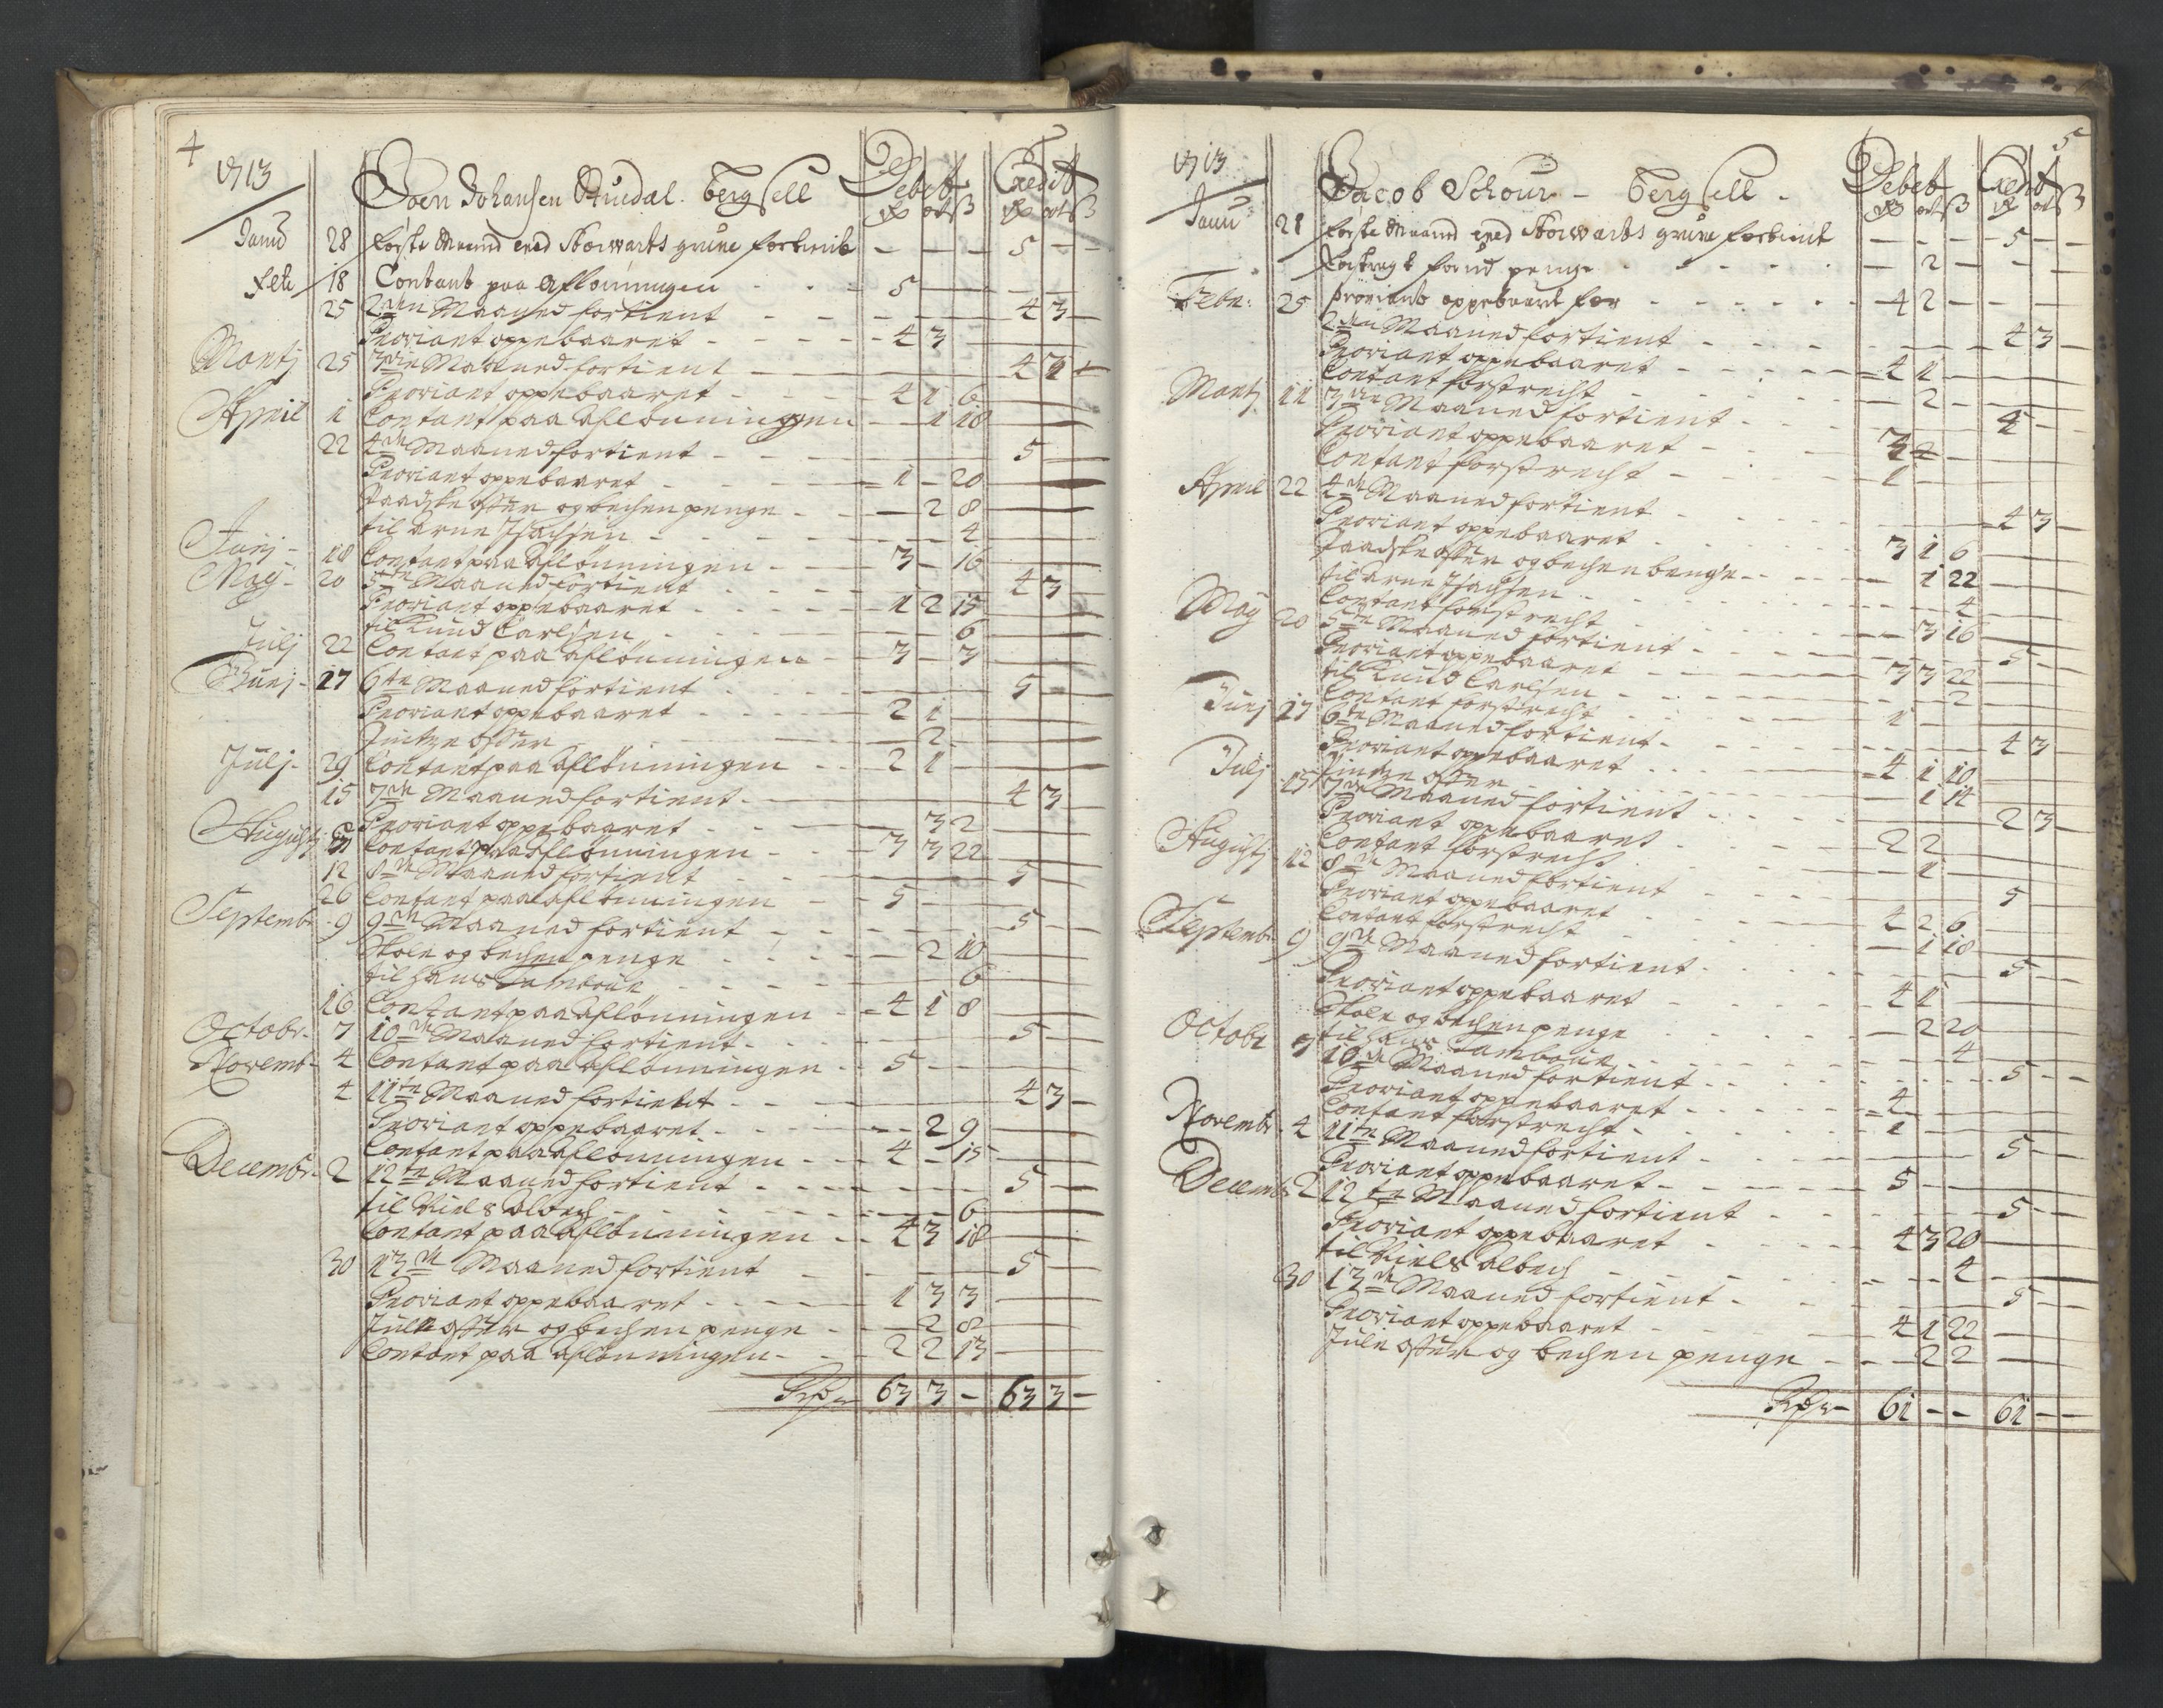 4
1713 Joen Johansen Stuedal. bergsell Debet Credit
rdr ort ß rdr ort ß
Janu 28 første Maaned ved Storwarts grube fortient — — — 5 — —
Feb 18 Contant paa aflønningen 5 — —
25 2den Maaned fortient 4 3 —
Proviant oppebaaret 4 3 —
Martj 25 3die Maaned fortient
Proviant oppebaaret 4 1 6
April 1 Contant paa aflønningen — 1 18
22 4de Maaned fortient 5 —
Proviant oppebaaret 1 — 20
Paadske offer og bechen penge — 2 8
til Arne Isachsen 4
Junj 18 Contant paa aflønningen 3 — 16
Maij 20 5te Maaned fortient 4 3 —
Proviant oppebaaret 1 2 15
til Knud Carlsen 6
Julj 22 Contant paa aflønningen 3 — 3
Junj 17 6te Maaned fortient 5 —
Proviant oppebaaret 2 1 —
Pintze offer — 2 —
Julj 29 Contant paa aflønningen 2 1 —
15 7de Maaned fortient 4 3 —
Proviant oppebaaret 3 2
Augustj Contant paa aflønningen 3 3 22
12 8de Maaned fortient 5 —
26 Contant paa aflønningen 5 —
Septembr 9 9de Maaned fortient 5 —
Skole og bechen penge — 2 10
til Hans Tambour 6
16 Contant paa aflønningen 4 1 8
Octobr 7 10de Maaned fortient 5 —
Novembr 4 Contant paa aflønningen 5 —
4 11te Maaned fortient 4 3 —
Proviant oppebaaret — 2 9
Contant paa aflønningen 4 — 15
Decembr 2 12te Maaned fortient 5 —
til Niels Albech 6
Contant paa aflønningen 4 3 18
30 13de Maaned fortient 5 —
Proviant oppebaaret 1 3 3
Jule offer og bechen penge — 2 8
Contant paa aflønningen 2 2 13
63 3 — 63 3 —
5
1713 Jacob Schour — bergsell Debet Credit
rdr ort ß rdr ort ß
Janu 28 første Maaned ved Storwarts grube fortient — — — 5 — —
forstragt forud penge — 2 —
Febr: 25 Proviant oppebaaret for 4 2 —
2den Maaned fortient 4 3 —
Proviant oppebaaret 4 1 —
Contant forstrecht — 2 —
Martj 3die Maaned fortient
Proviant oppebaaret
Contant forstrecht 1 —
April 22 4de Maaned fortient 4 3 —
Proviant oppebaaret 3 1 6
Paadske offer og bechen benge — 1 22
til Arne Isachsen 4
Contant forstrecht — 3 16
Maij 20 5te Maaned fortient 5 —
Proviant oppebaaret 3 3 22
til Knud Carlsen 2
Contant forstrecht 1 —
Junj 17 6te Maaned fortient 4 3 —
Proviant oppebaaret 4 1 10
Pintze offer — 1 14
Julj 15 7de Maaned fortient 2 3 —
Proviant oppebaaret 2 2 —
Contant forstrecht — 1 —
Augustj 12 8de Maaned fortient 5 —
Proviant oppebaaret 4 2 6
Contant forstrecht — 1 18
Septembr 9 9de Maaned fortient 5 —
Proviant oppebaaret 4 1 —
Skole og bechen penge — 2 20
til Hans Tambour 4
Octobr 7 10de Maaned fortient 5 —
Proviant oppebaaret 4 —
Contant forstrecht 1 —
Novembr 4 11te Maaned fortient 5 —
Proviant oppebaaret 5 —
Decembr 2 12te Maaned fortient 5 —
Proviant oppebaaret 4 3 20
til Niels Albech 4
30 13de Maaned fortient 5 —
Proviant oppebaaret 4 1 22
Jule offer og bechen penge — 2 2
61 — — 61 — —